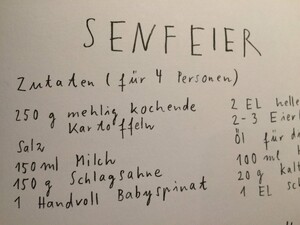 SENFEIER
Zutaten (für 4 Personen)
250 g mehlig kochende
Kartoffeln
Salz
150 ml Milch
150 g Schlagsahne
1 Handvoll Babyspinat
2 EL helle
2-3 Eier
Öl für d
100 ml
20 g kalt
1 EL sch